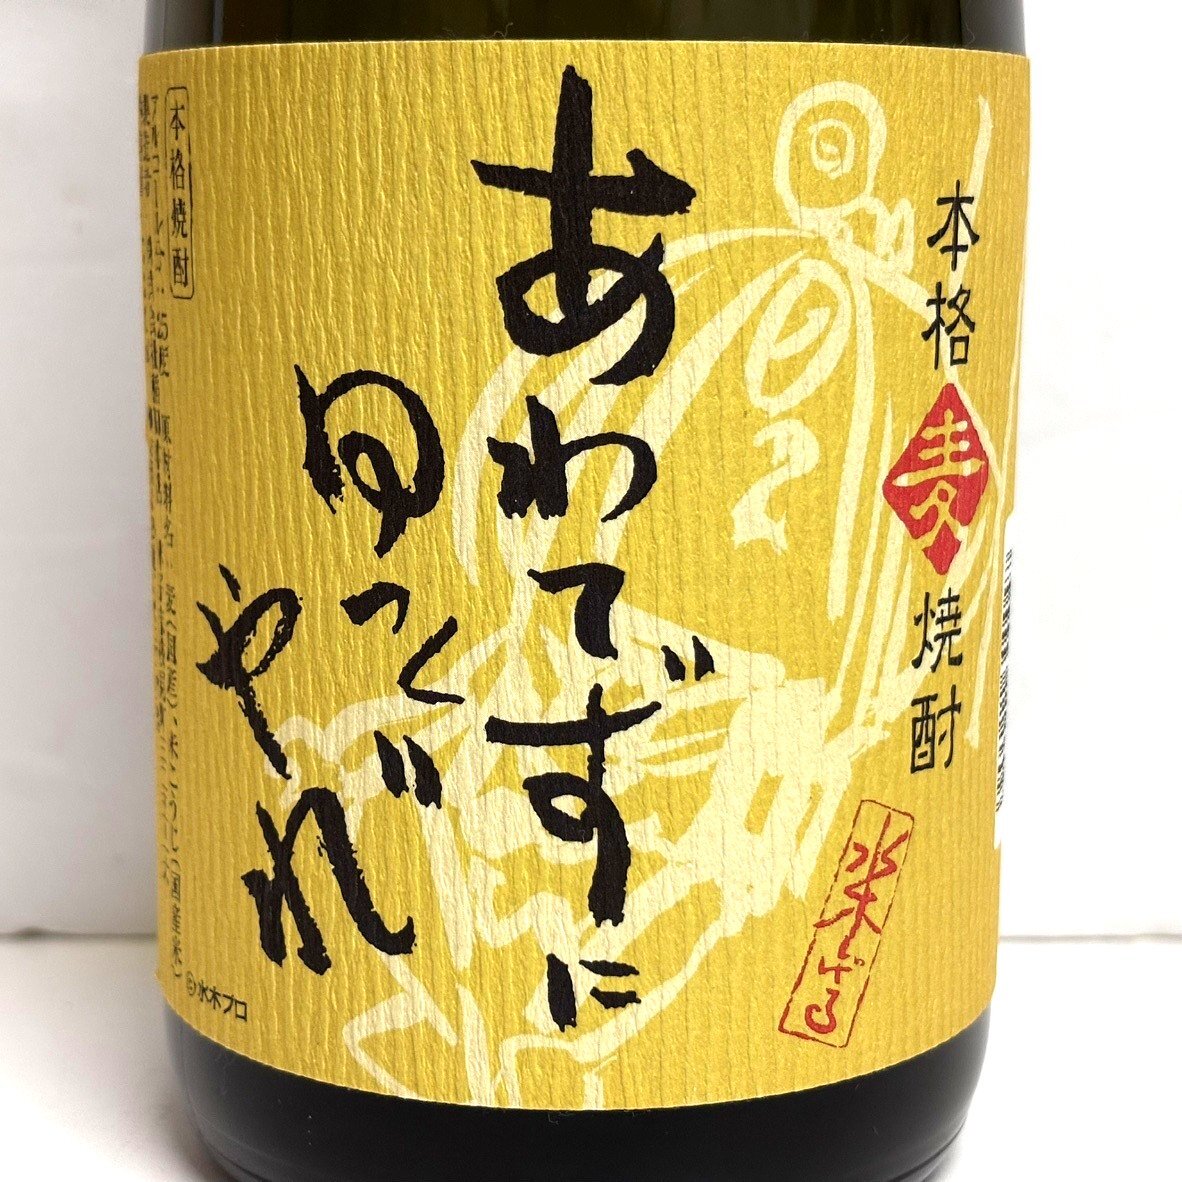 本格
麦
焼酎
水木しげる
あわてずに
ゆっくり
やれ
本格焼酎
25度 原材料名:麦(国産)、米こうじ(国産米)
©水木プロ